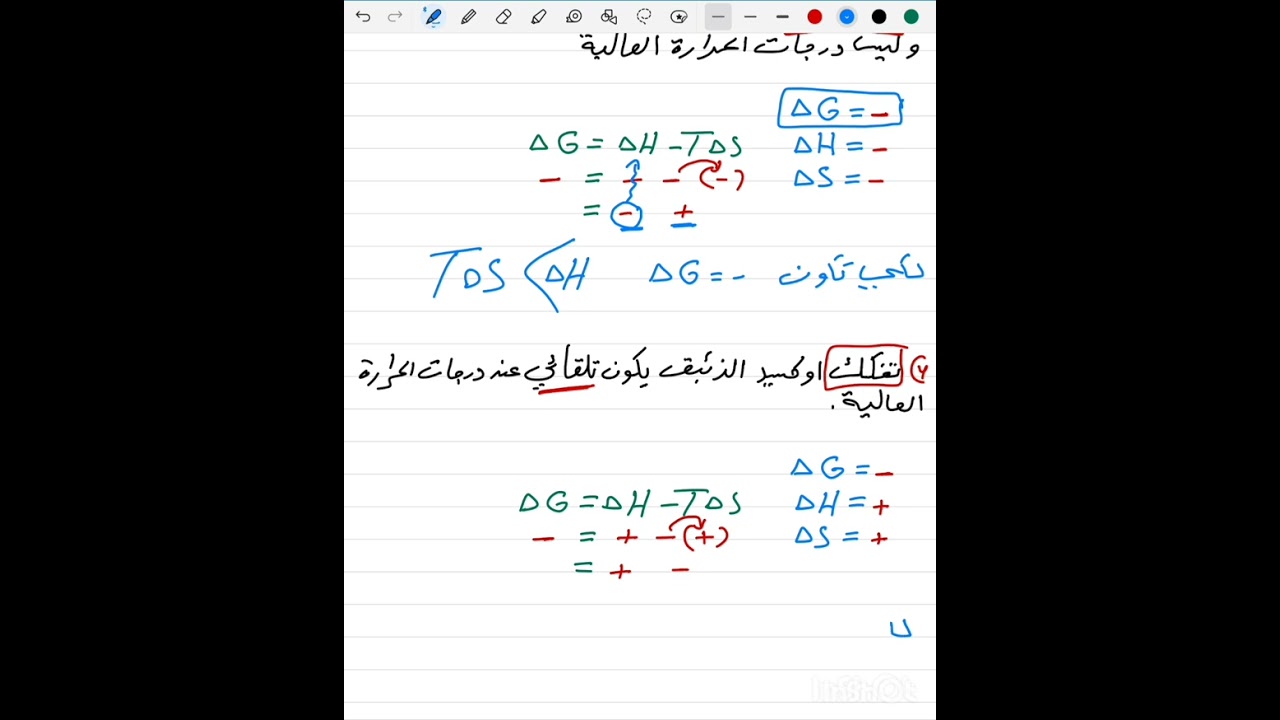 وليس درجات الحرارة العالية
ΔG = -
ΔG = ΔH - TΔS ΔH = -
- = - - (-) ΔS = -
= - +
لكي تكون ΔG = - TΔS < ΔH
٢) تفكك اوكسيد الزئبق يكون تلقائي عند درجات الحرارة
العالية .
ΔG = -
ΔG = ΔH - TΔS ΔH = +
- = + - (+) ΔS = +
= + -